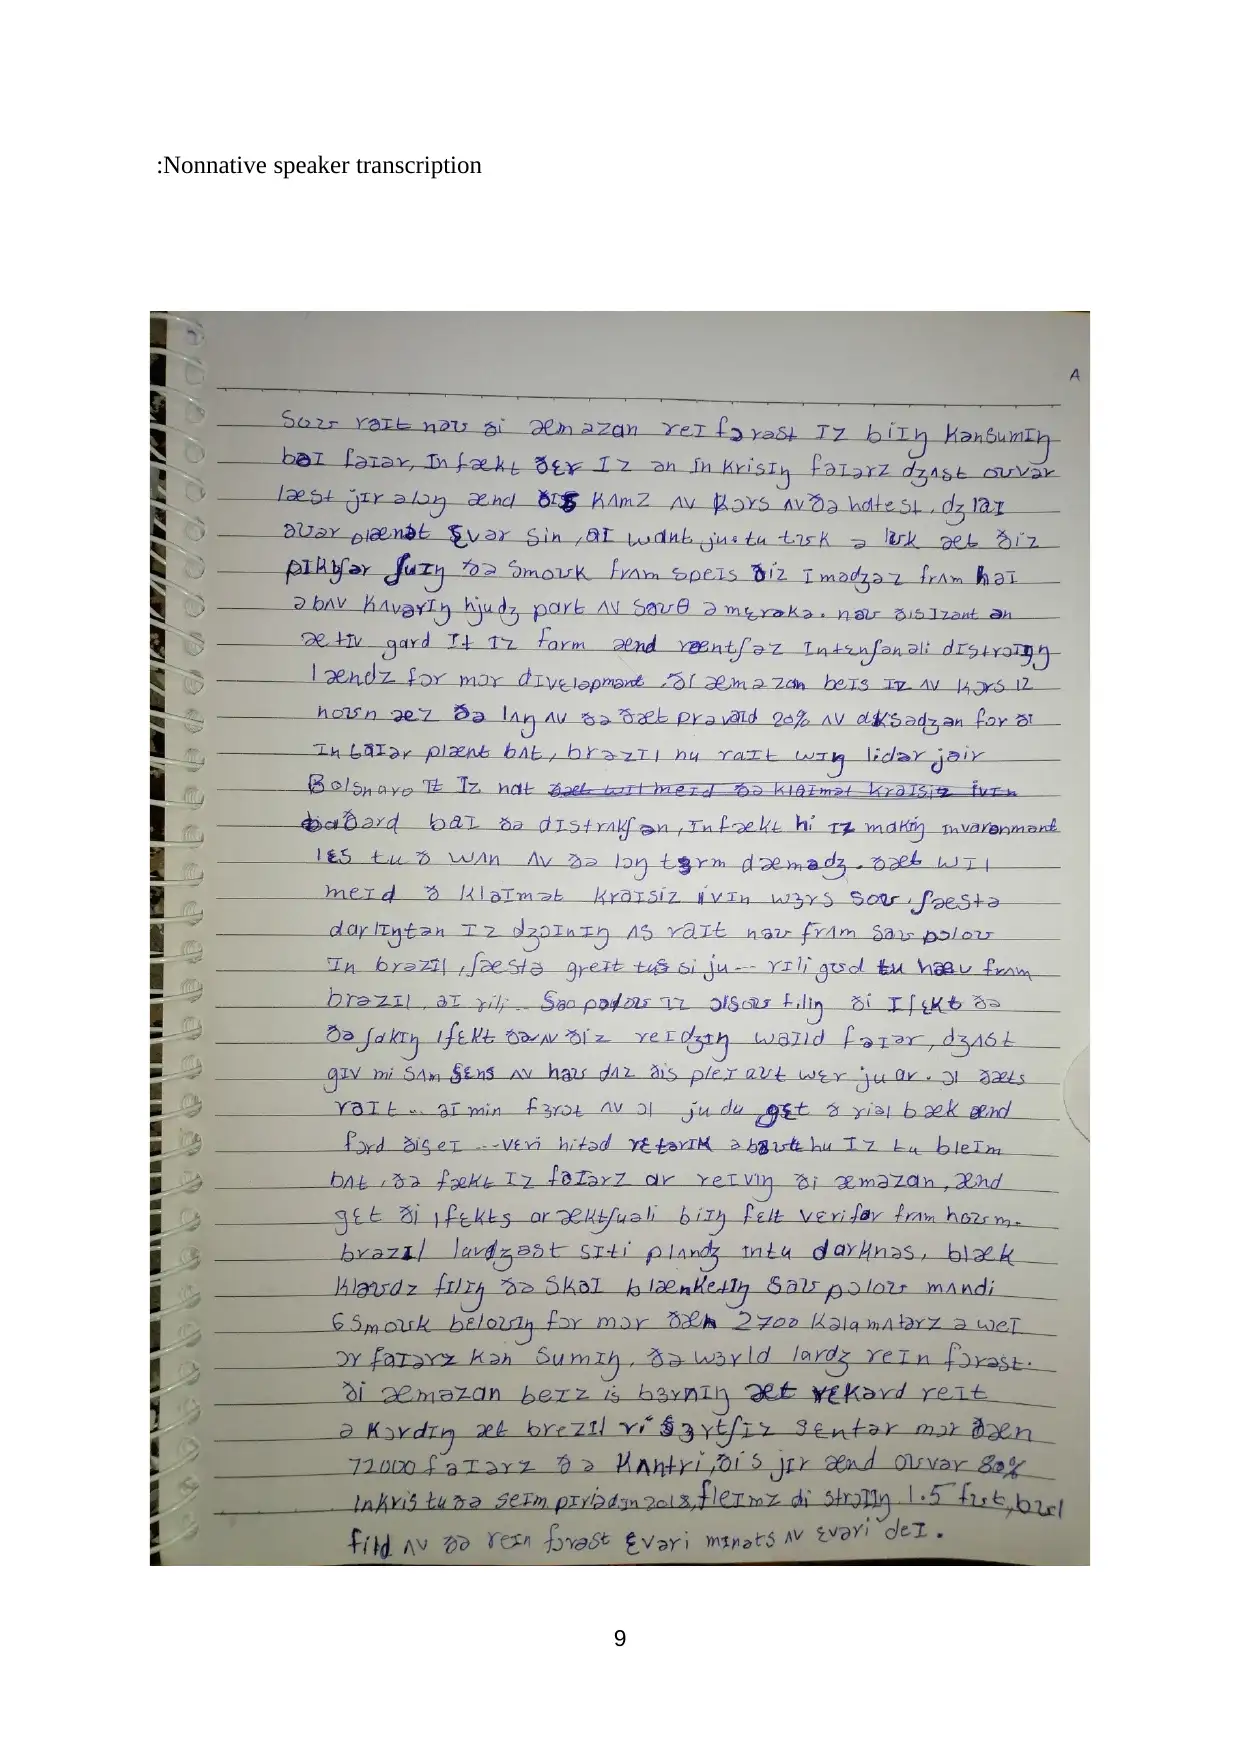 :Nonnative speaker transcription
A
Soʊ rəIt nəʊ ði æmazan reI fɔrəst Iz biIŋ kənsumIŋ
bəI faIər, In fækt ðɛr Iz ən In krisIŋ fəIərz dʒʌst oʊvər
læst jIr əlɔŋ ænd ðIs kʌmz ʌv kɔrs ʌv ðə hatest. dʒ laI
plænət ɛvər sin, aI want tu tʊk ə lʊk æt ðiz
pIktʃər ʃuIŋ ðə smoʊk frʌm speIs ðiz Imədʒəz frʌm haI
əbʌv kʌvərIŋ hjudʒ part ʌv saʊθ əmɛrəkə. nəʊ ðIs Izənt ən
gard It Iz farm ænd Intɛnʃənəli dIstrɔIŋ
lændz fər mɔr dIvɛləpmənt, ði æməzan beIs Iz ʌv kɔrs Iz
noʊn æz ðə lʌŋ ʌv ðə ðæt prəvaId 20% ʌv aksədʒən for ði
IntaIər plænt bʌt, brəzIl hu raIt wIŋ lidər jair
Bolsnaro It Iz nat ðæt wIl meId ðə klaImət kraIsiz IvIn
baðərd baI ðə dIstrʌkʃən, In fækt hi Iz makiŋ Invarənmənt
lɛs tu ð wʌn ʌv ðə lɔŋ tɜrm dæmədʒ. ðæt wIl
meId ð klaImət kraIsiz ivIn wɜrs soʊ. ʃæstə
darlIŋtən Iz dʒɔInIŋ ʌs raIt nəʊ frʌm saʊ pɔloʊ
In brəzIl, ʃæstə greIt tu si ju --- rIli gʊd tu hæv frʌm
brəzIl, aI rili... Sao paoloʊ Iz ɔlsoʊ filiŋ ði IfɛKt ðə
ðə ʃakIŋ Ifɛkt ʌv ðiz reIdʒIŋ waIld faIər, dʒʌst
gIv mi sʌm sɛns ʌv haʊ dʌz ðis pleI aʊt wɛr ju ar. ɔl ðæts
raIt... aI min fɜrət ʌv ɔl ju du gɛt ð riəl bæk ænd
fɔrd ðis eI --- vɛri hitəd rɛtərIk əbaʊt hu Iz tu bleIm
bʌt, ðə fækt Iz faIərz ar reIvIŋ ði æməzan, ænd
gɛt ði Ifɛkts ar æktʃuəli biIŋ fɛlt vɛri far frʌm hoʊm.
brəzIl lardʒəst sIti plʌndʒ Intu darknəs, blæk
klaʊdz filIŋ ðə skaI blænketIŋ saʊ pɔloʊ mʌndi
smoʊk bɛloʊIŋ fər mɔr ðæn 2700 kəlamʌtərz əweI
ɔr faIərz kən sumIŋ, ðə wɜrld lardʒ reIn fɔrəst.
ði æməzan beIz is bɜrnIŋ æt rɛkərd reIt
əkɔrdIŋ æt brezIl risɜrtʃIz sɛntər mɔr ðæn
72000 faIərz ðə kʌntri, ðis jIr ænd oʊvər 80%
Inkris tu ðə seIm pIriəd In 2018, fleImz di strɔIIŋ 1.5
fild ʌv ðə reIn fɔrəst ɛvəri mInəts ʌv ɛvəri deI.
9